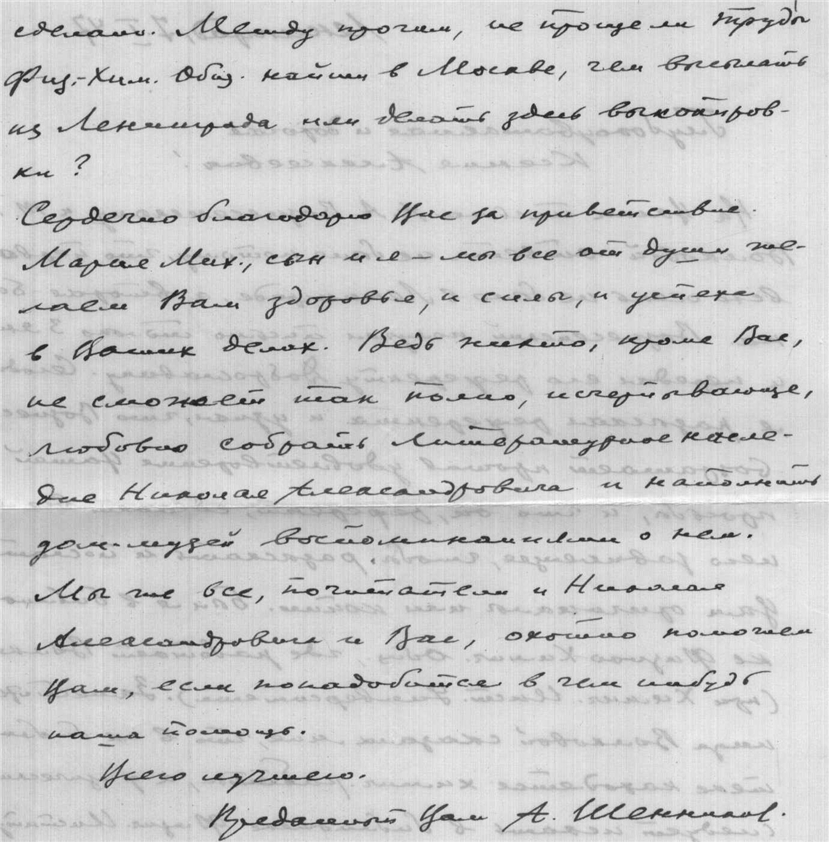 сделано. Между прочим, не проще ли труды
Физ.-Хим. Общ. найти в Москве, чем высылать
из Ленинграда или делать здесь выкопиров-
ки?
Сердечно благодарю Вас за приветствие.
Мария Мих., сын и я – мы все от души же-
лаем Вам здоровья, и силы, и успеха
в Ваших делах. Ведь никто, кроме Вас,
не сможет так полно, исчерпывающе,
любовно собрать литературное насле-
дие Николая Александровича и наполнить
дом-музей воспоминаниями о нем.
Мы же все, почитатели и Николая
Александровича и Вас, охотно поможем
Вам, если понадобится в чем нибудь
наша помощь.
Всего лучшего.
Преданный Вам А. Шенников.